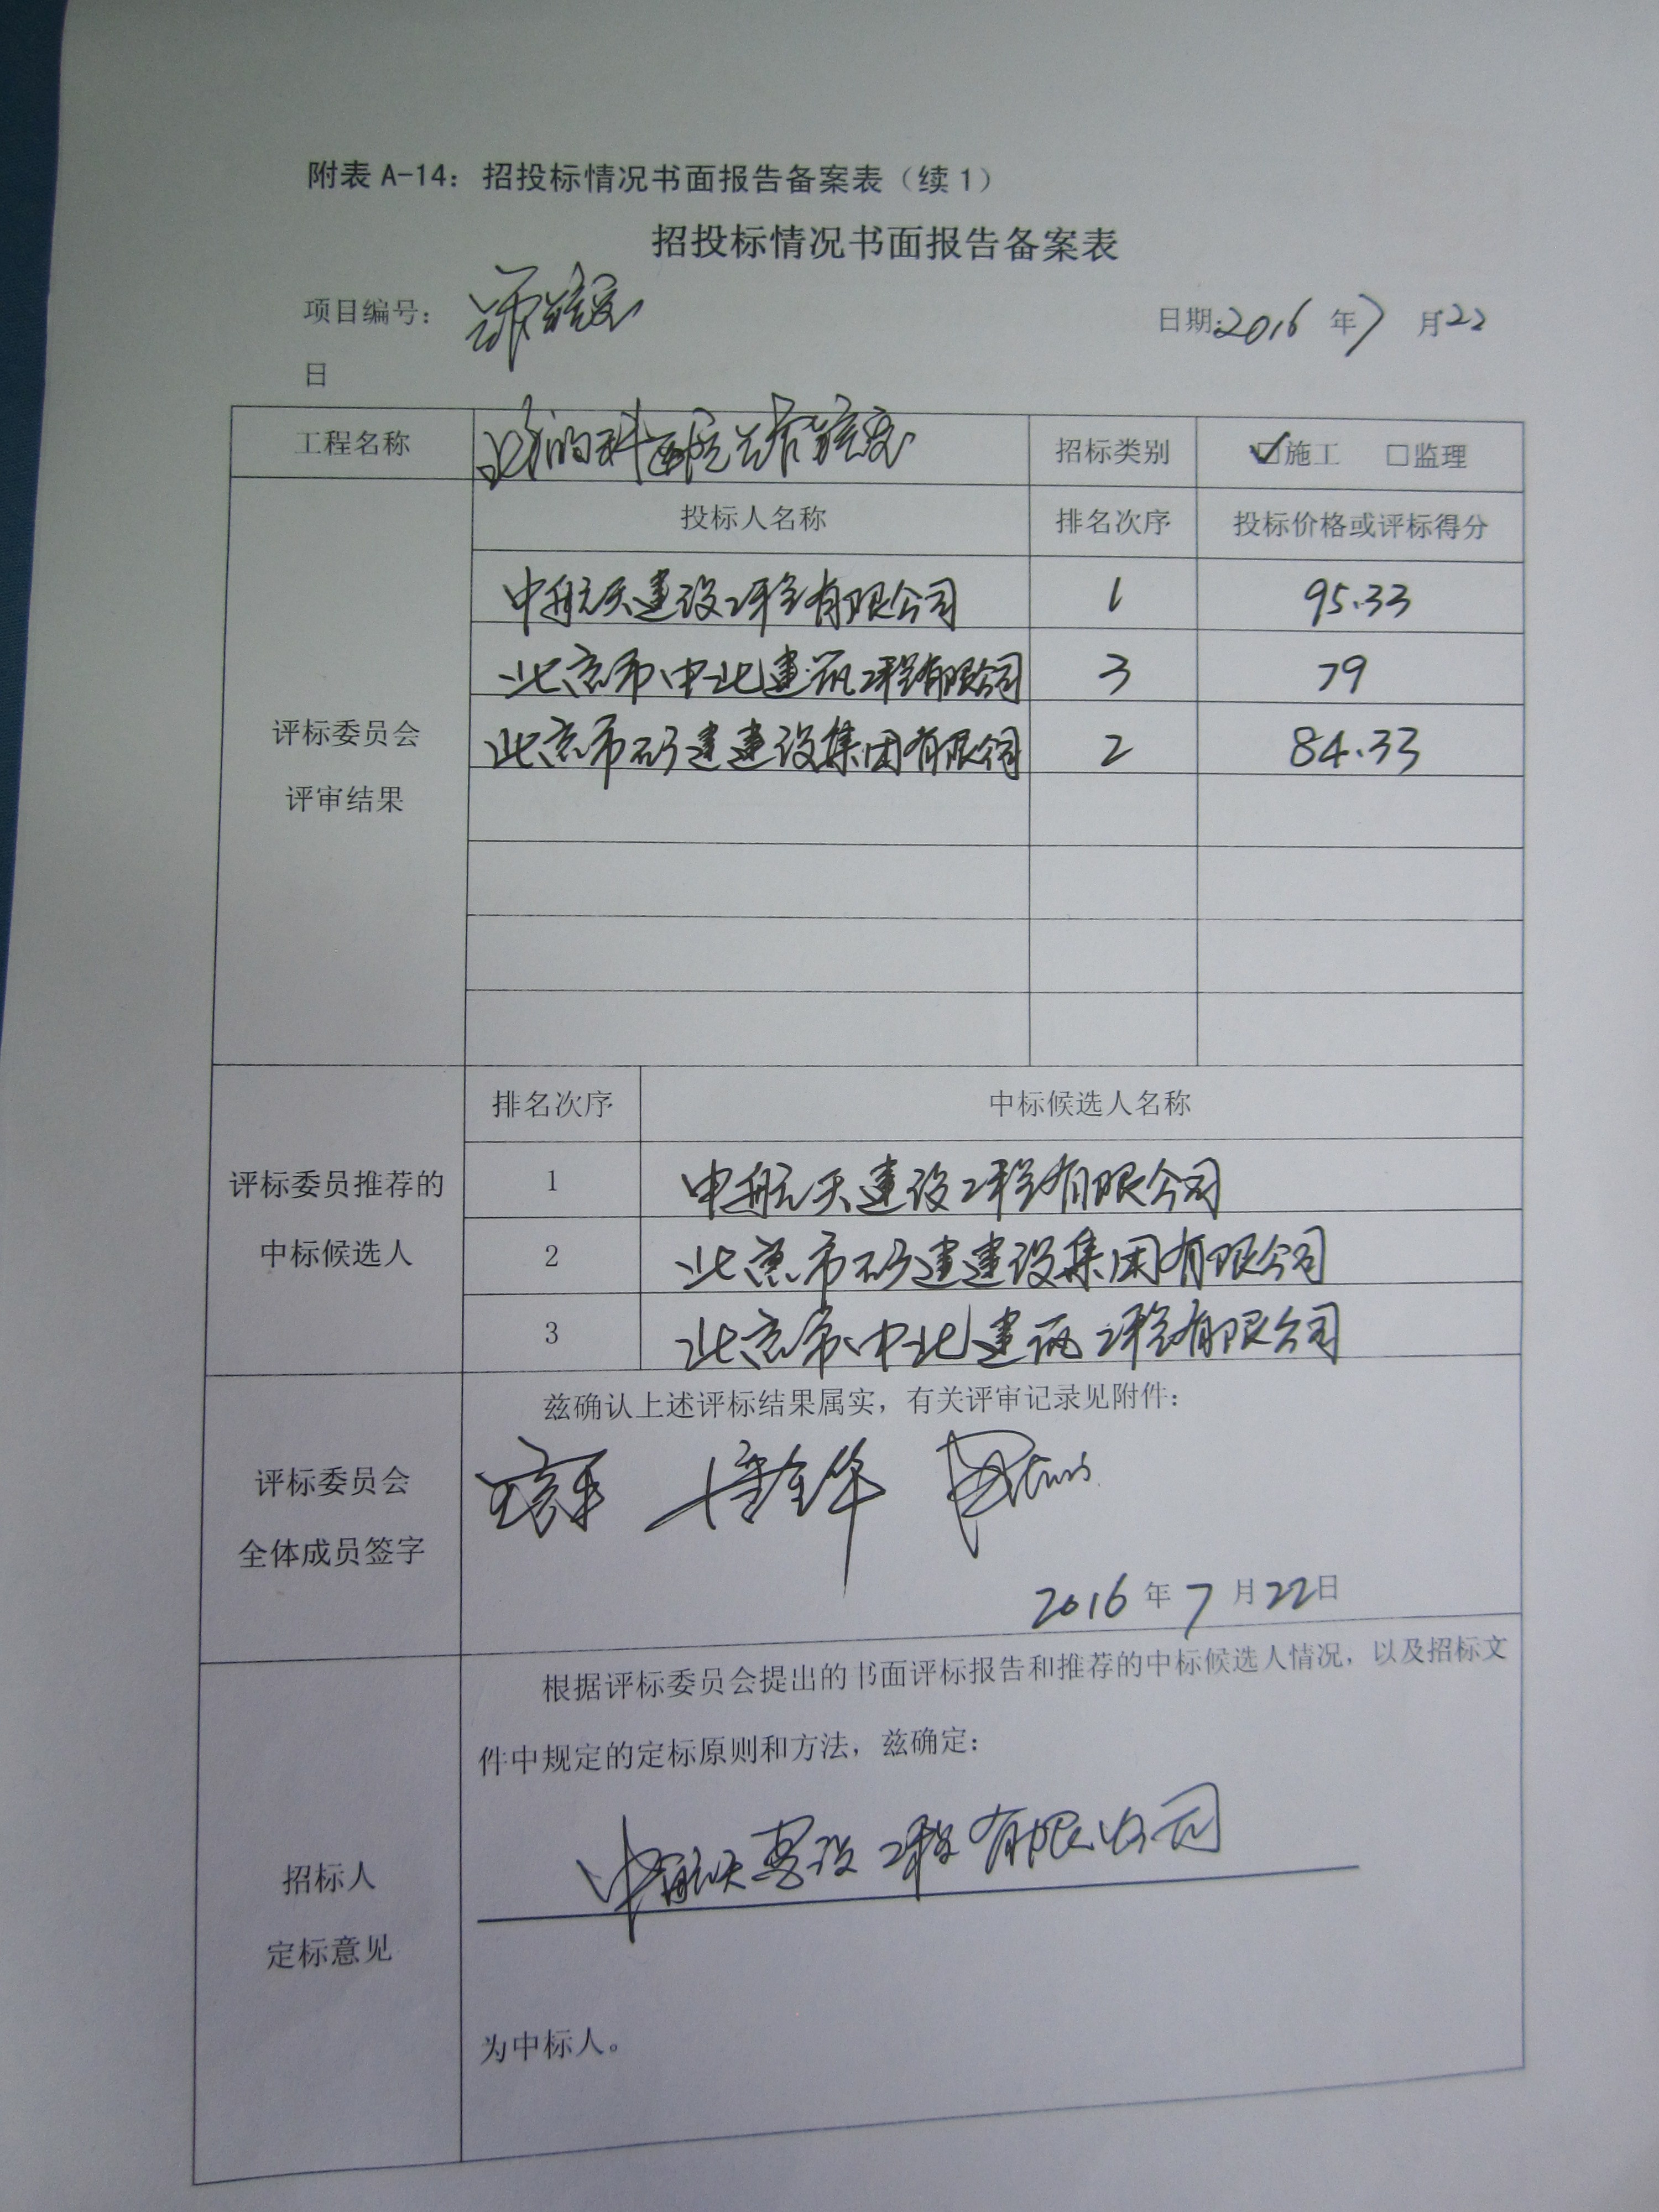 附表 A-14：招投标情况书面报告备案表（续1）
招投标情况书面报告备案表
项目编号：
日期：2016 年 7 月 22
日
工程名称
招标类别 ☑施工 □监理
评标委员会
评审结果
投标人名称 排名次序 投标价格或评标得分
中航天建设工程有限公司 1 95.33
北京市中北建筑工程有限公司 3 79
北京市矿建建设集团有限公司 2 84.33
评标委员推荐的
中标候选人
排名次序 中标候选人名称
1 中航天建设工程有限公司
2 北京市矿建建设集团有限公司
3 北京市中北建筑工程有限公司
评标委员会
全体成员签字
兹确认上述评标结果属实，有关评审记录见附件：
2016 年 7 月 22日
招标人
定标意见
根据评标委员会提出的书面评标报告和推荐的中标候选人情况，以及招标文
件中规定的定标原则和方法，兹确定：
中航天建设工程有限公司
为中标人。